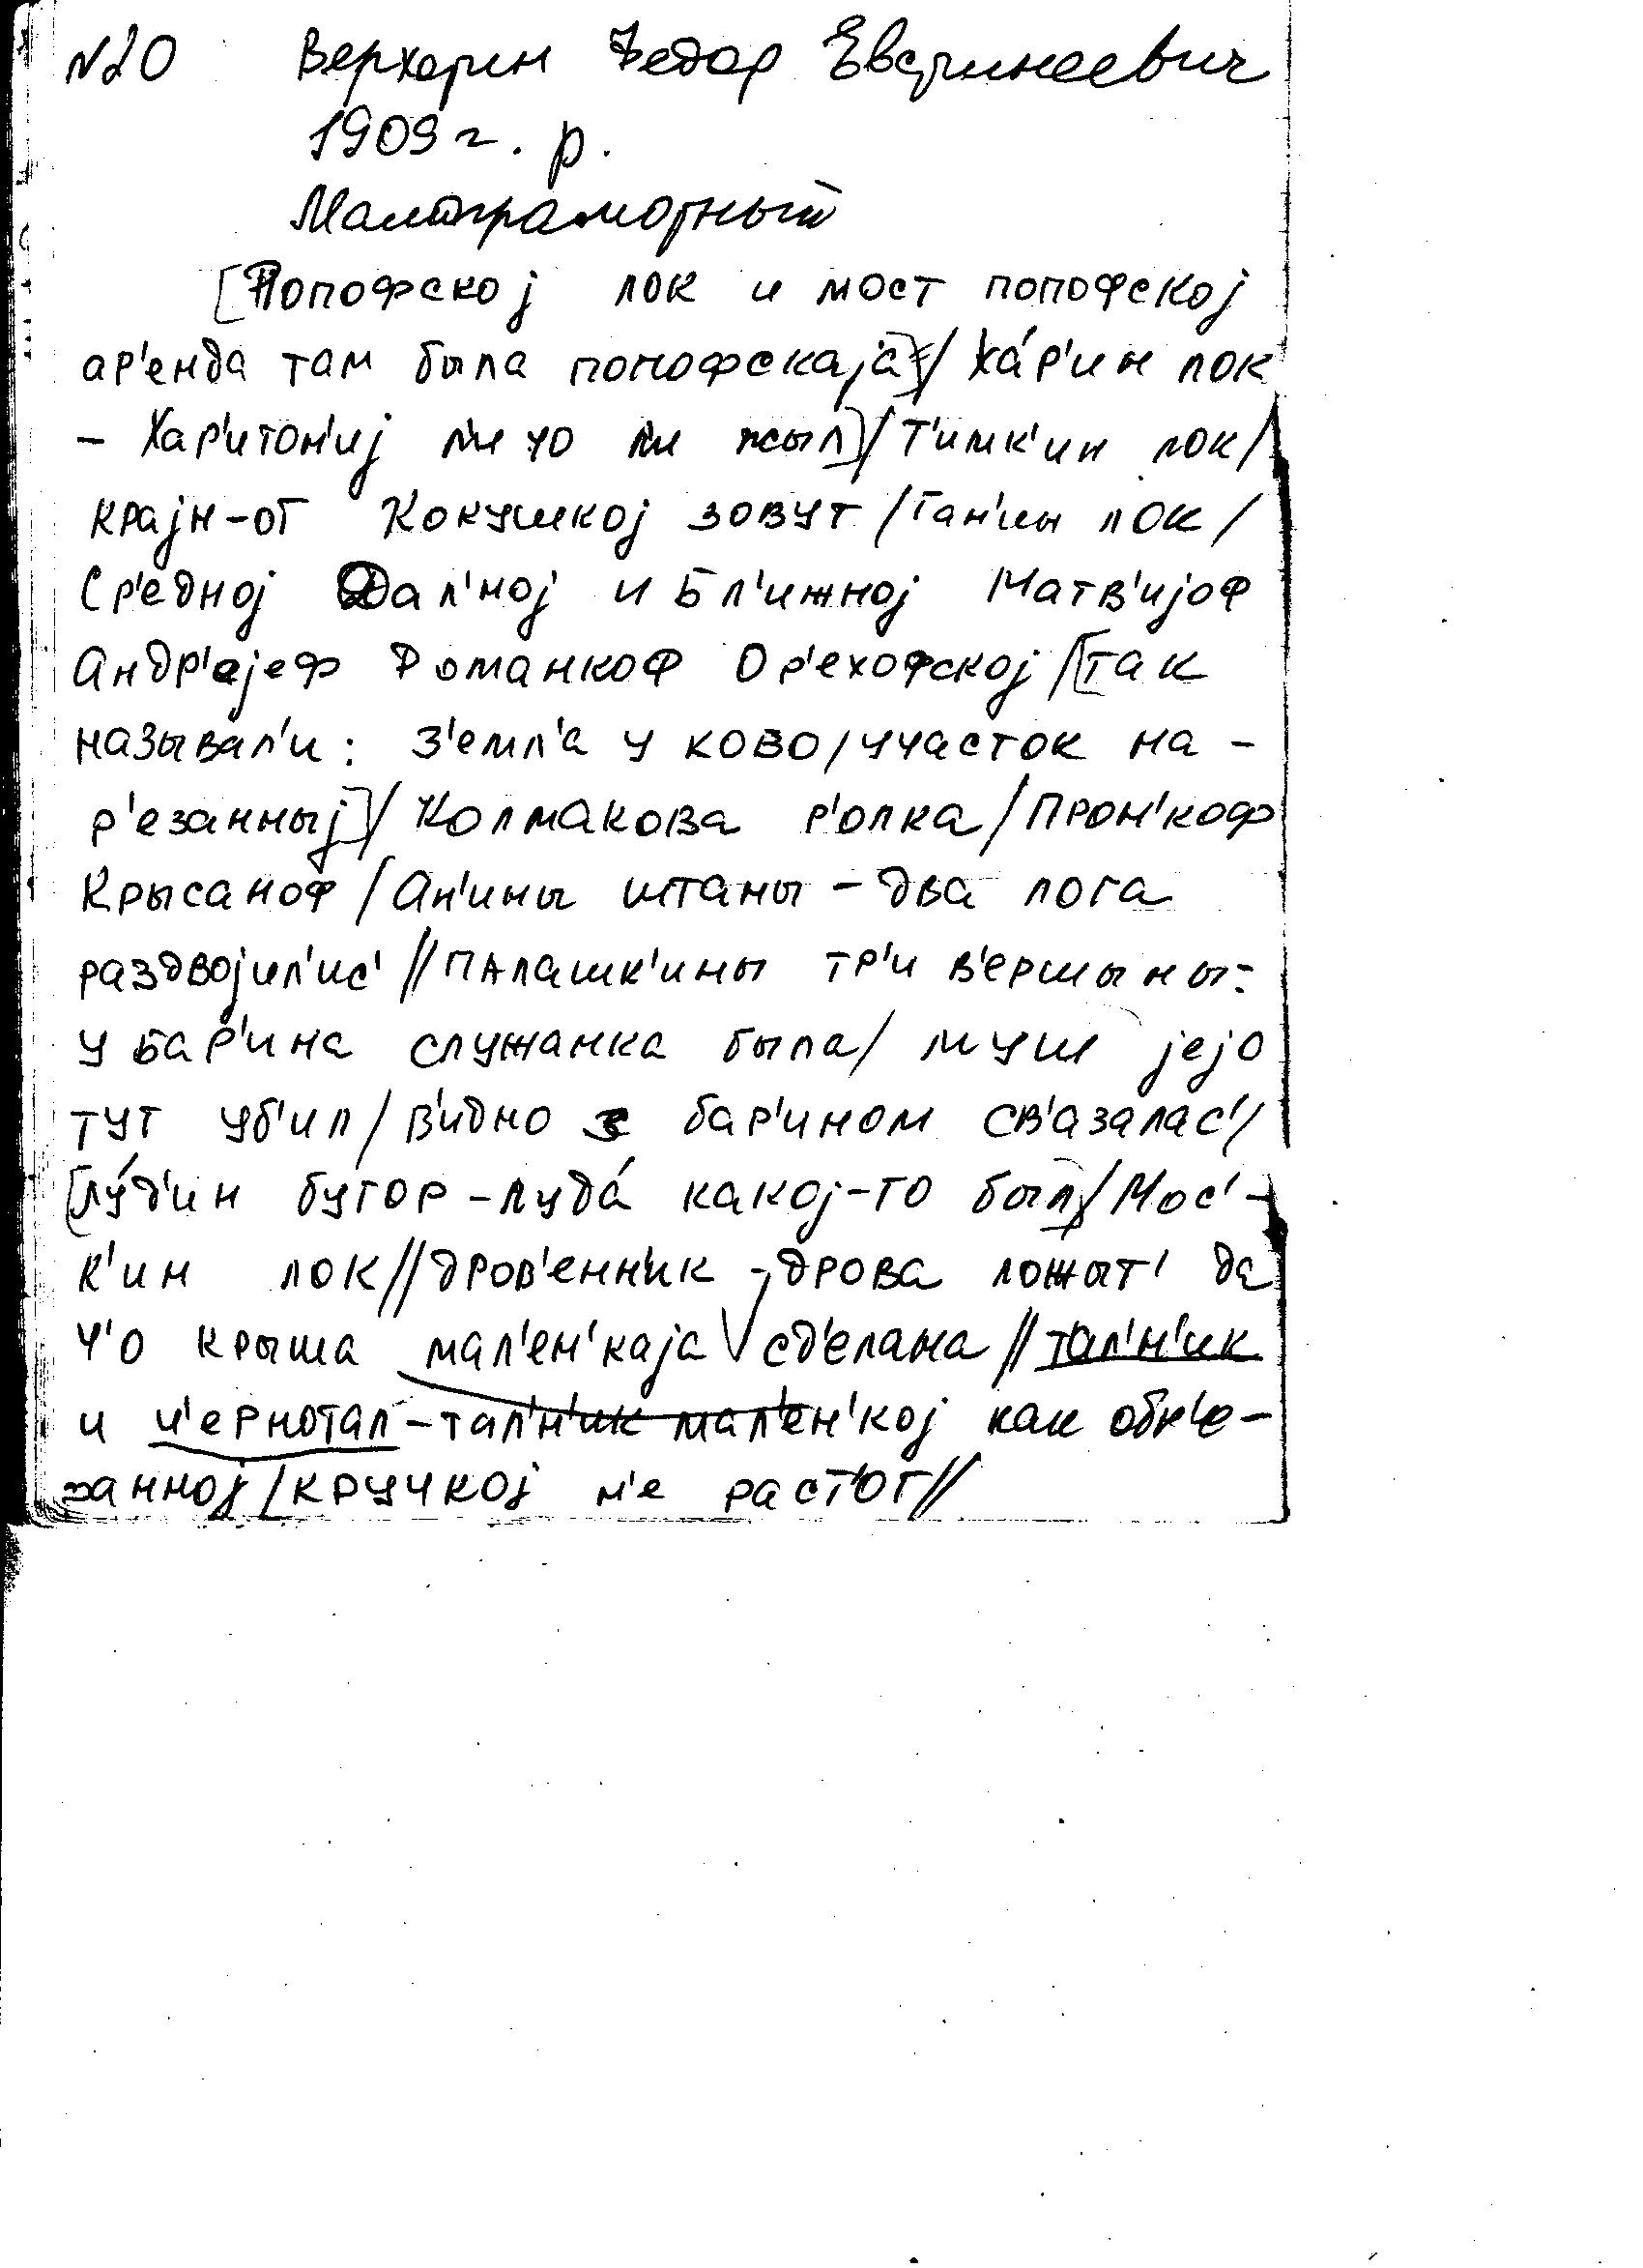 N20 Верхорин Федор Евстинеевич
1909 г. р.
Малограмотный
[Попофској лок и мост попофској
ар'енда там была попофскаја]/ Ха́р'ин лок
– Хар'итон'иј л'и чо л'и жыл]/Т'имк'ин лок/
крајн-от Кокушкој зовут /Ган'ин лок/
Ср'едној Дал'ној и Бл'ижној Матв'ијоф
Андр'ејеф Романкоф Ор'ехофској/[так
называл'и: з'емл'а у ково/участок на-
р'езанныј]/Колмакова р'олка/Прон'коф
Крысаноф/Ан'ины штаны – два лога
раздвојил'ис' //Палашк'ины тр'и в'ершыны:
у бар'ина служанка была/ муш јејо
тут уб'ил/в'идно з бар'ином св'азалас'/
[лу́д'ин бугор – луда́ какој-то был]/Мос'-
к'ин лок//дров'енн'ик – дрова ложыт' да
ч'о крыша мал'ен'каја сд'елана//тал'н'ик
и ч'ернотал – тал'н'ик мал'ен'кој как обр'е-
занној/кручкој н'е раст'от//